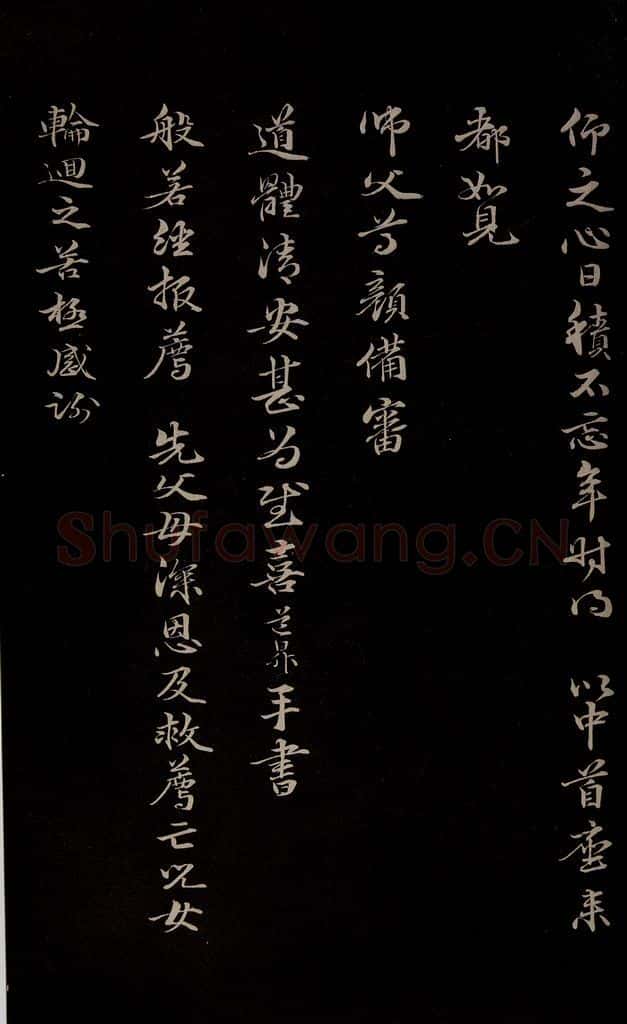 仰之心日積不忘年時得 以中首座來
都如見
師父尊顏備審
道體清安甚為慰喜道昇手書
般若經報薦 先父母深恩及救薦亡兒女
輪迴之苦極感謝
Shufawang.CN